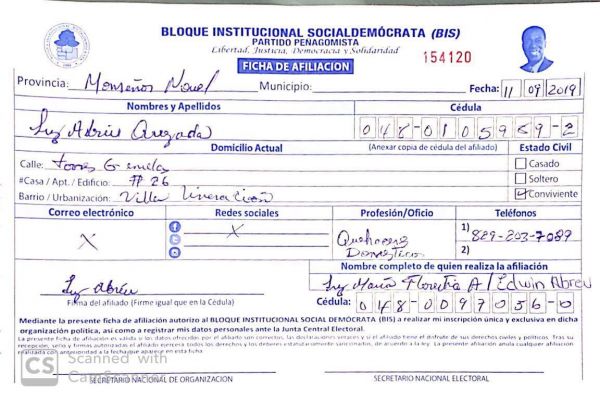 BLOQUE INSTITUCIONAL SOCIALDEMÓCRATA (BIS)
PARTIDO PENAGOMISTA
Libertad, Justicia, Democracia y Solidaridad
154120
FICHA DE AFILIACION
Provincia: Monseños Nouel Municipio: Fecha: 11 09 2019
Nombres y Apellidos Cédula
Luz 048-0105969-2
Domicilio Actual (Anexar copia de cédula del afiliado) Estado Civil
Calle: Casado
#Casa / Apt. / Edificio: # 26 Soltero
Barrio / Urbanización: Villa Liveración Conviviente
Correo electrónico Redes sociales Profesión/Oficio Teléfonos
X X Quehaceres Domésticos 1) 829-203-7089
2)
Nombre completo de quien realiza la afiliación
Luz Abreu Luz María A/ Edwin Abreu
Firma del afiliado (Firme igual que en la Cédula) Cédula: 048-0097056-0
Mediante la presente ficha de afiliación autorizo al BLOQUE INSTITUCIONAL SOCIAL DEMÓCRATA (BIS) a realizar mi inscripción única y exclusiva en dicha
organización política, así como a registrar mis datos personales ante la Junta Central Electoral.
La presente ficha de afiliación es válida si los datos ofrecidos por el afiliado son correctos, las declaraciones veraces y si el afiliado tiene el disfrute de sus derechos civiles y políticos. Tras su
recepción, sello y firmas autorizadas el afiliado ejercerá todos los derechos y los deberes estatutariamente sancionados, de acuerdo a la ley. La presente afiliación anula cualquier afiliación
realizada con anterioridad a la fecha que aparece en esta ficha.
CS Scanned with
CamScanner
SECRETARIO NACIONAL DE ORGANIZACIÓN SECRETARIO NACIONAL ELECTORAL